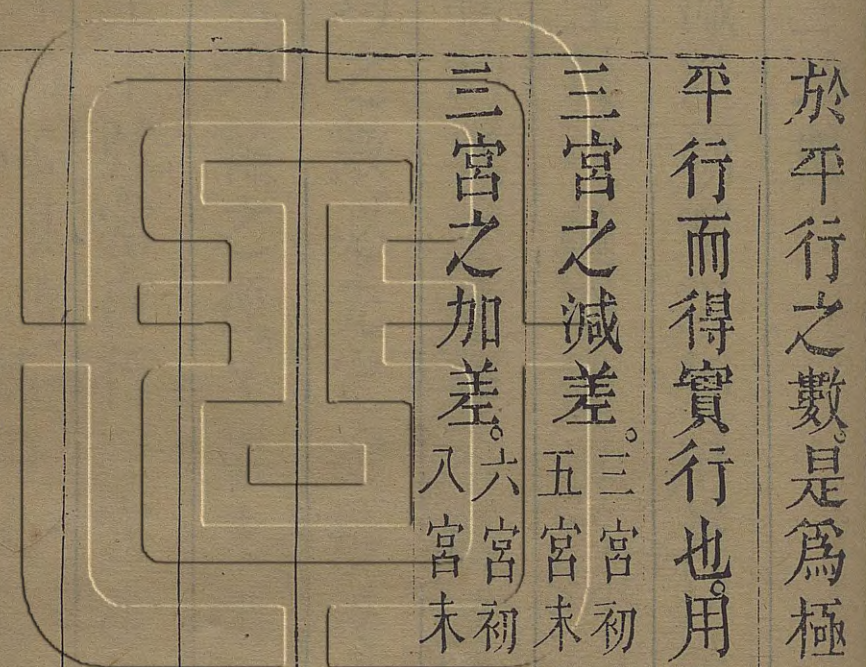 於平行之數。是爲極
平行而得實行也。用
三宮之減差。三宮初五宮末
三宮之加差。六宮初八宮末